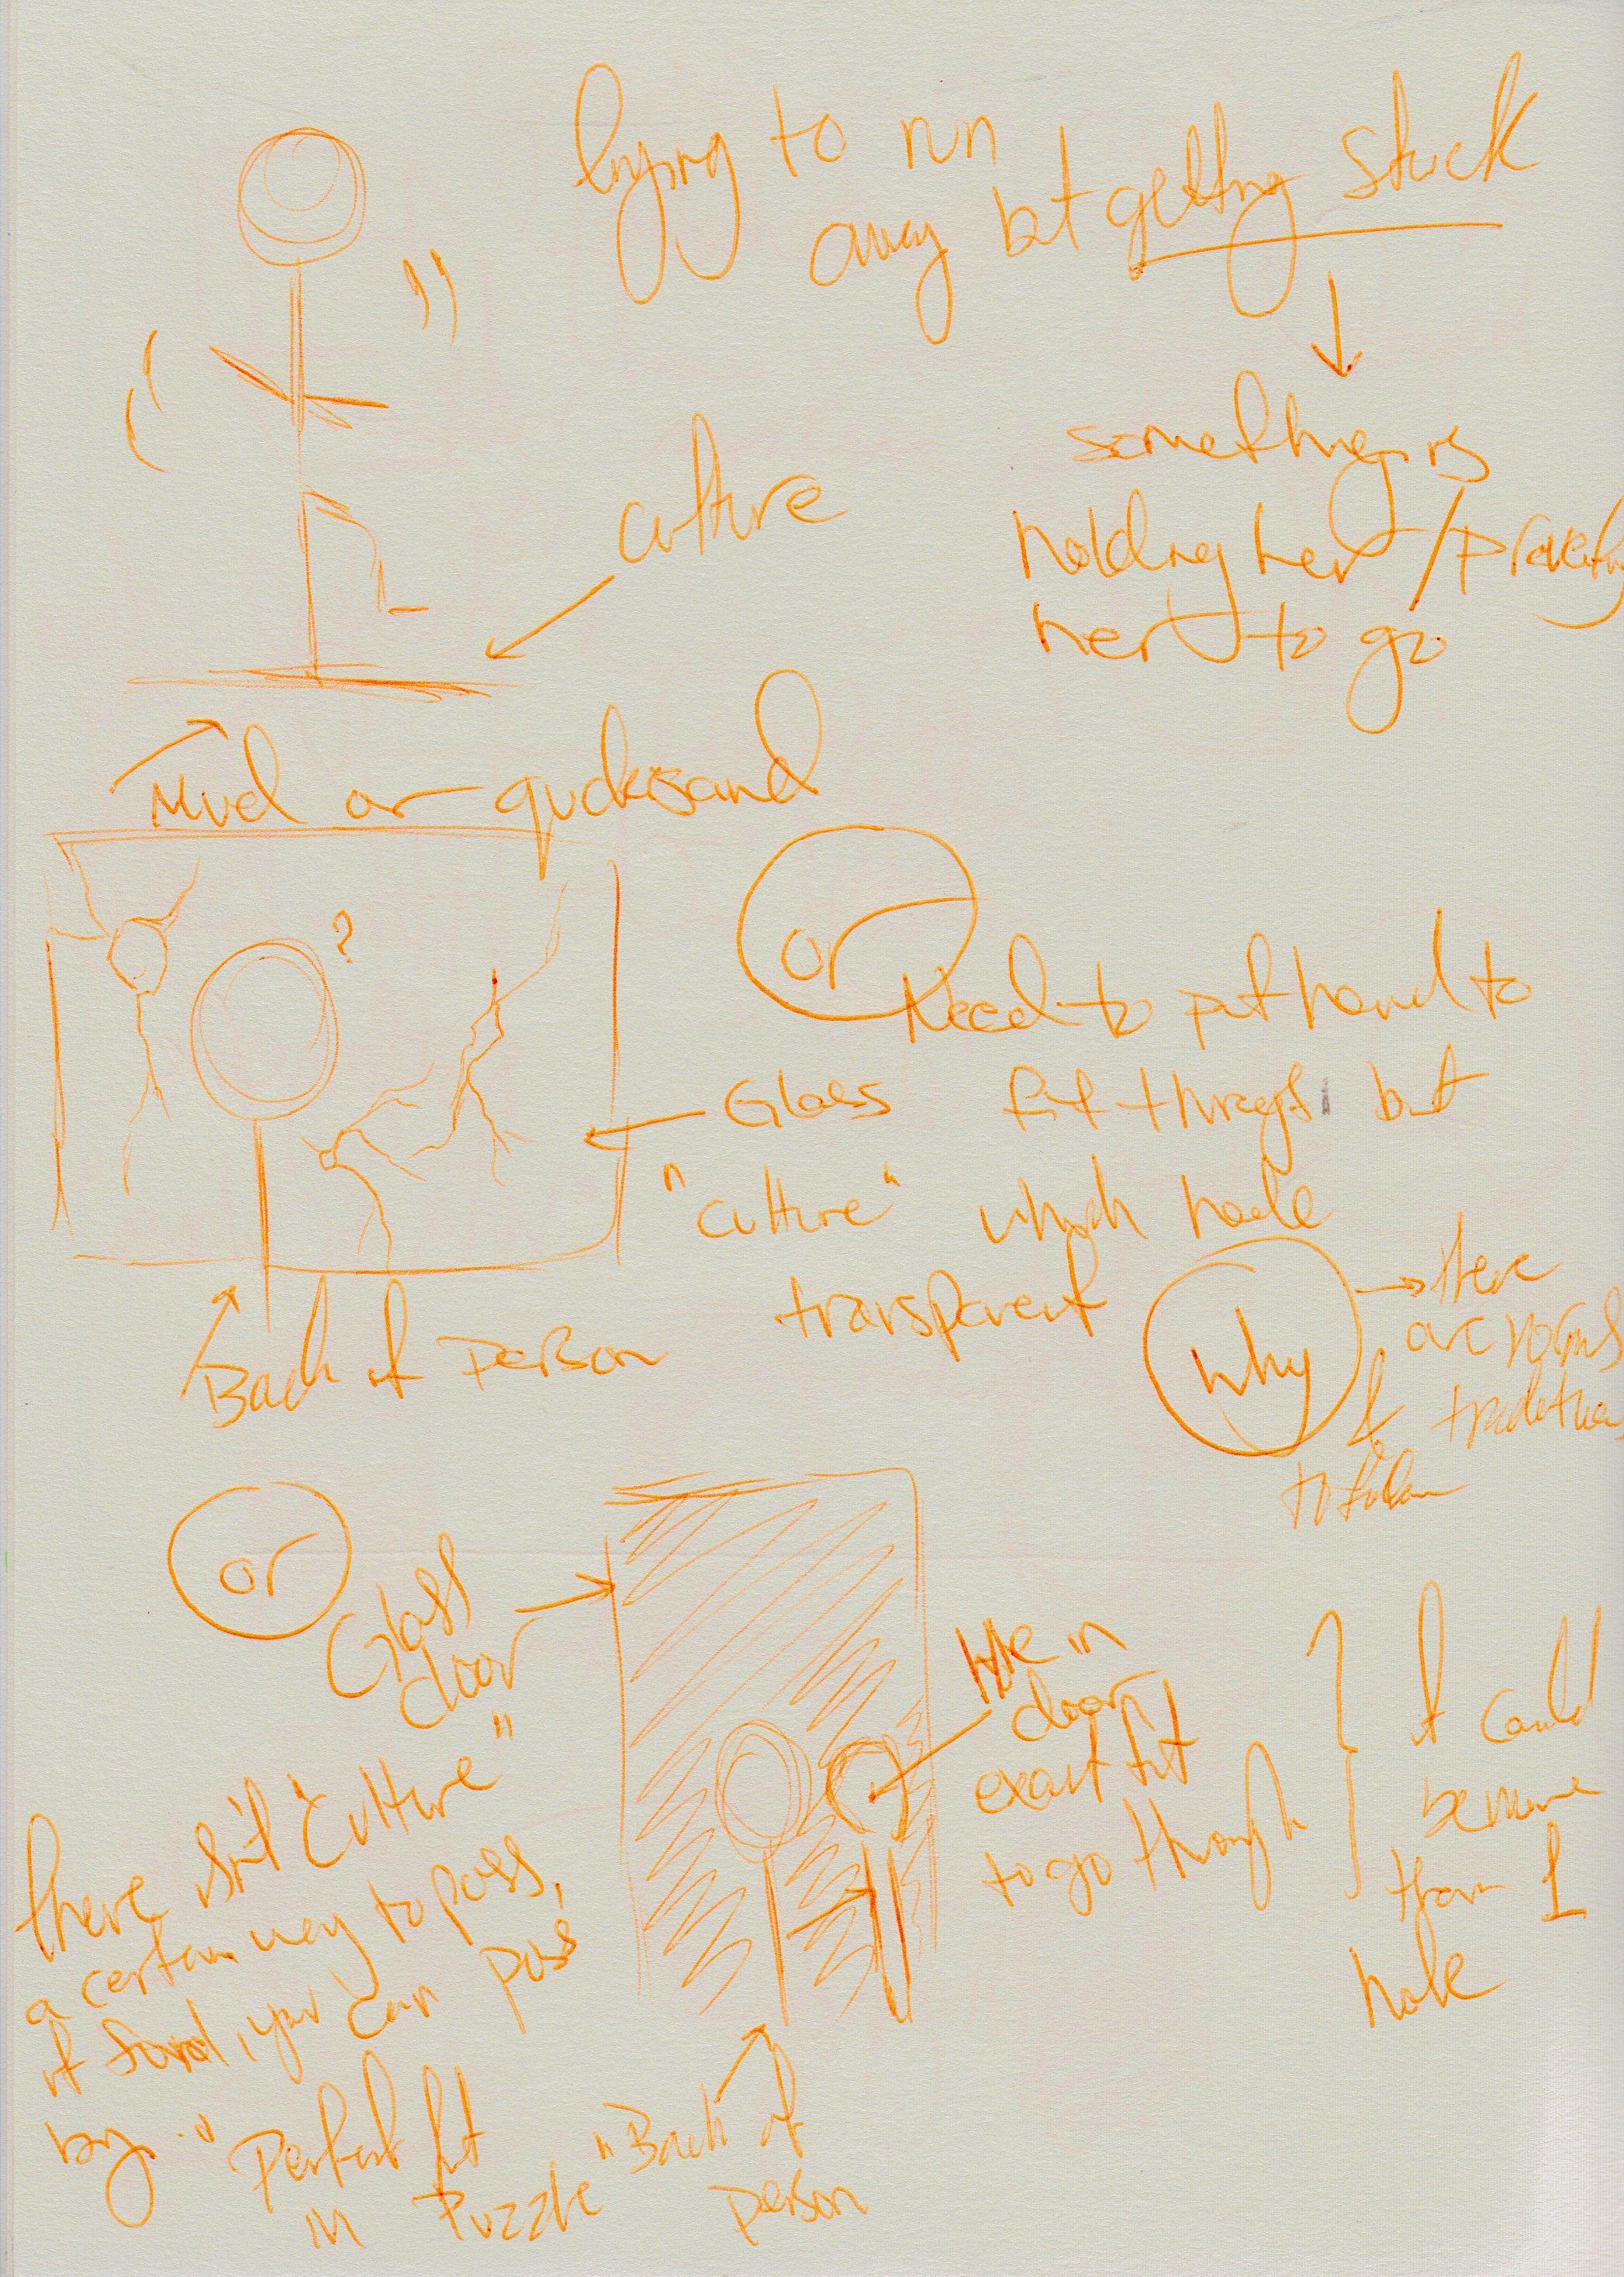 trying to run
away bt getting stuck
something is
holding her / preventing
her to go
culture
Mud or quicksand
?
or
Need to put hand to
fit through but
which hole
Glass
"culture"
transparent
Why
there
are norms
& traditions
to follow
Back of person
or
Glass
door
"
Hole in
door
exact fit
to go through
it could
be more
than 1
hole
there isn't "culture"
a certain way to pass,
if found, you can pass
by.
"Perfect fit
in Puzzle"
Back of
person